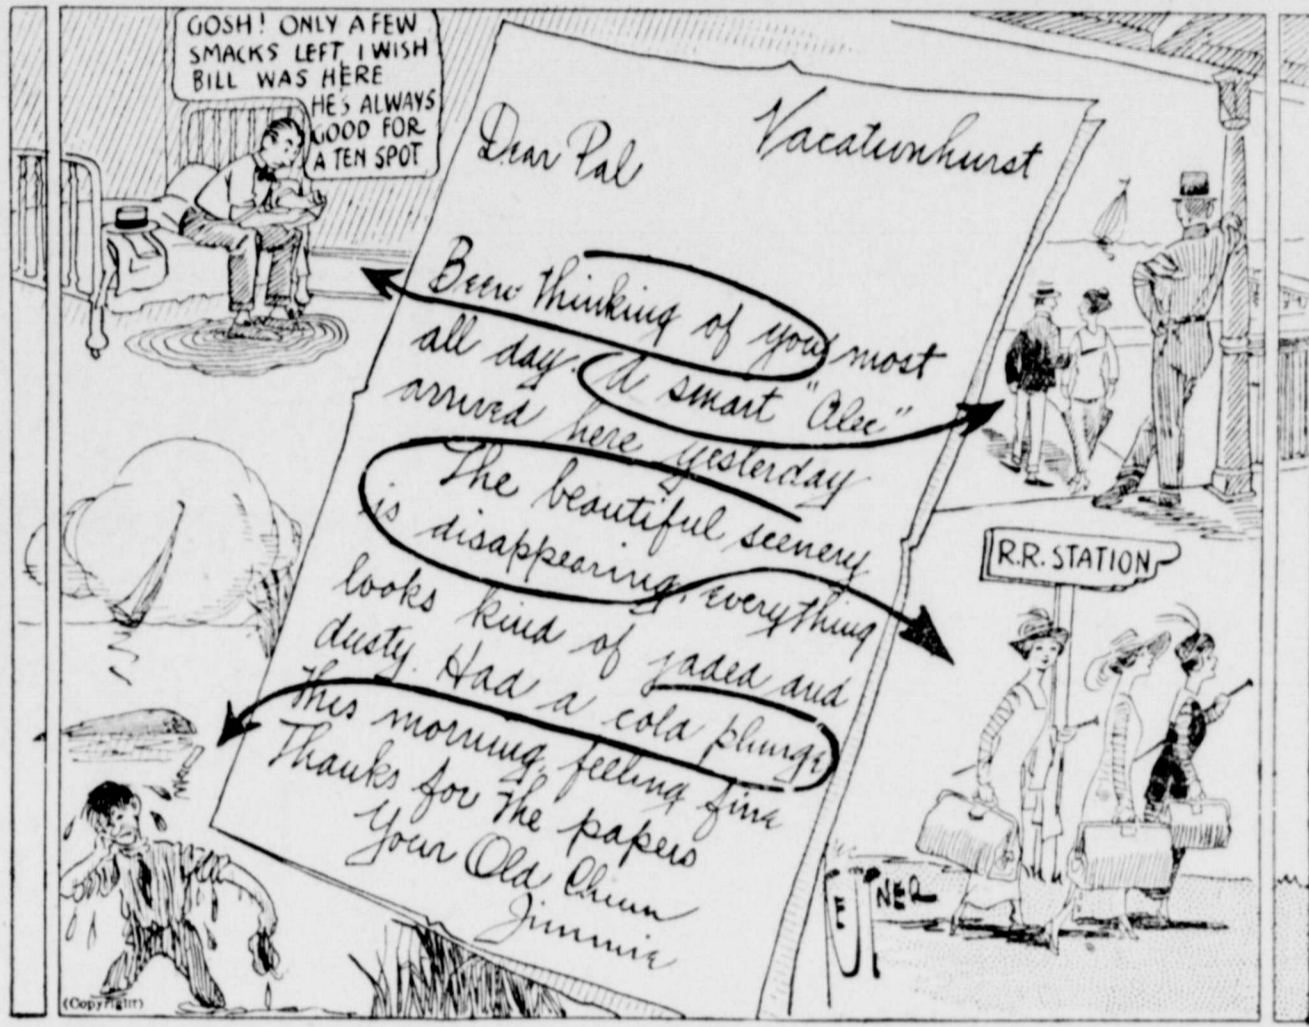 GOSH! ONLY A FEW
SMACKS LEFT, I WISH
BILL WAS HERE
HE'S ALWAYS
GOOD FOR
A TEN SPOT
Vacationhurst
Dear Pal
Been thinking of you most
all day. A smart "Alec"
arrived here yesterday
The beautiful scenery
is disappearing. everything
looks kind of jaded and
dusty. Had a cold plunge
this morning, feeling fine
Thanks for the papers
Your Old Chum
Jimmie
R.R. STATION
(Copyright)